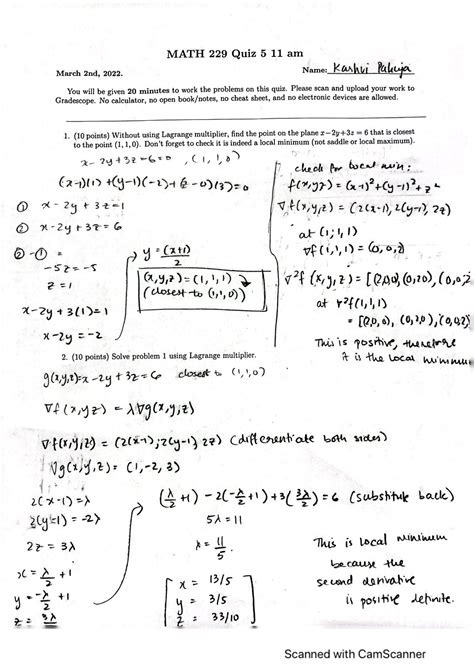 MATH 229 Quiz 5 11 am
March 2nd, 2022.
Name: Kashvi Pahuja
You will be given 20 minutes to work the problems on this quiz. Please scan and upload your work to
Gradescope. No calculator, no open book/notes, no cheat sheet, and no electronic devices are allowed.
1. (10 points) Without using Lagrange multiplier, find the point on the plane x−2y+3z = 6 that is closest
to the point (1, 1, 0). Don't forget to check it is indeed a local minimum (not saddle or local maximum).
x - 2y + 3z - 6 = 0 , (1, 1, 0)
(x-1)(1) + (y-1)(-2) + (z - 0)(3) = 0
① x - 2y + 3z = 1
② x - 2y + 3z = 6
② - ① =
- 5z = -5
z = 1
x - 2y + 3(1) = 1
x - 2y = -2
y = (x+1)
2
(x, y, z) = (1, 1, 1)
(closest to (1, 1, 0))
check for local min:
f(x,y,z) = (x-1)² + (y-1)² + z²
∇f(x,y,z) = (2(x-1), 2(y-1), 2z)
at (1, 1, 1)
∇f(1,1,1) = (0,0,2)
∇²f (x,y,z) = [(2,0,0), (0,2,0), (0,0,2
at ∇²f(1,1,1)
= [(2,0,0), (0,2,0), (0,0,2)
This is positive, therefore
it is the local minimum
2. (10 points) Solve problem 1 using Lagrange multiplier.
g(x,y,z) = x - 2y + 3z = 6 closest to (1,1,0)
∇f (x,y,z) = λ∇g(x,y,z)
∇f(x,y,z) = (2(x-1), 2(y-1) 2z) (differentiate both sides)
∇g(x,y,z) = (1, -2, 3)
2(x-1) = λ
2(y-1) = -2λ
2z = 3λ
x = λ/2 + 1
y = -λ/2 + 1
z = 3λ
(λ/2 + 1) - 2(-λ/2 + 1) + 3(3λ/2) = 6 (substitute back)
5λ = 11
λ = 11/5.
x = 13/5
y = 3/5
z = 33/10
This is local minimum
because the
second derivative
is positive definite.
Scanned with CamScanner